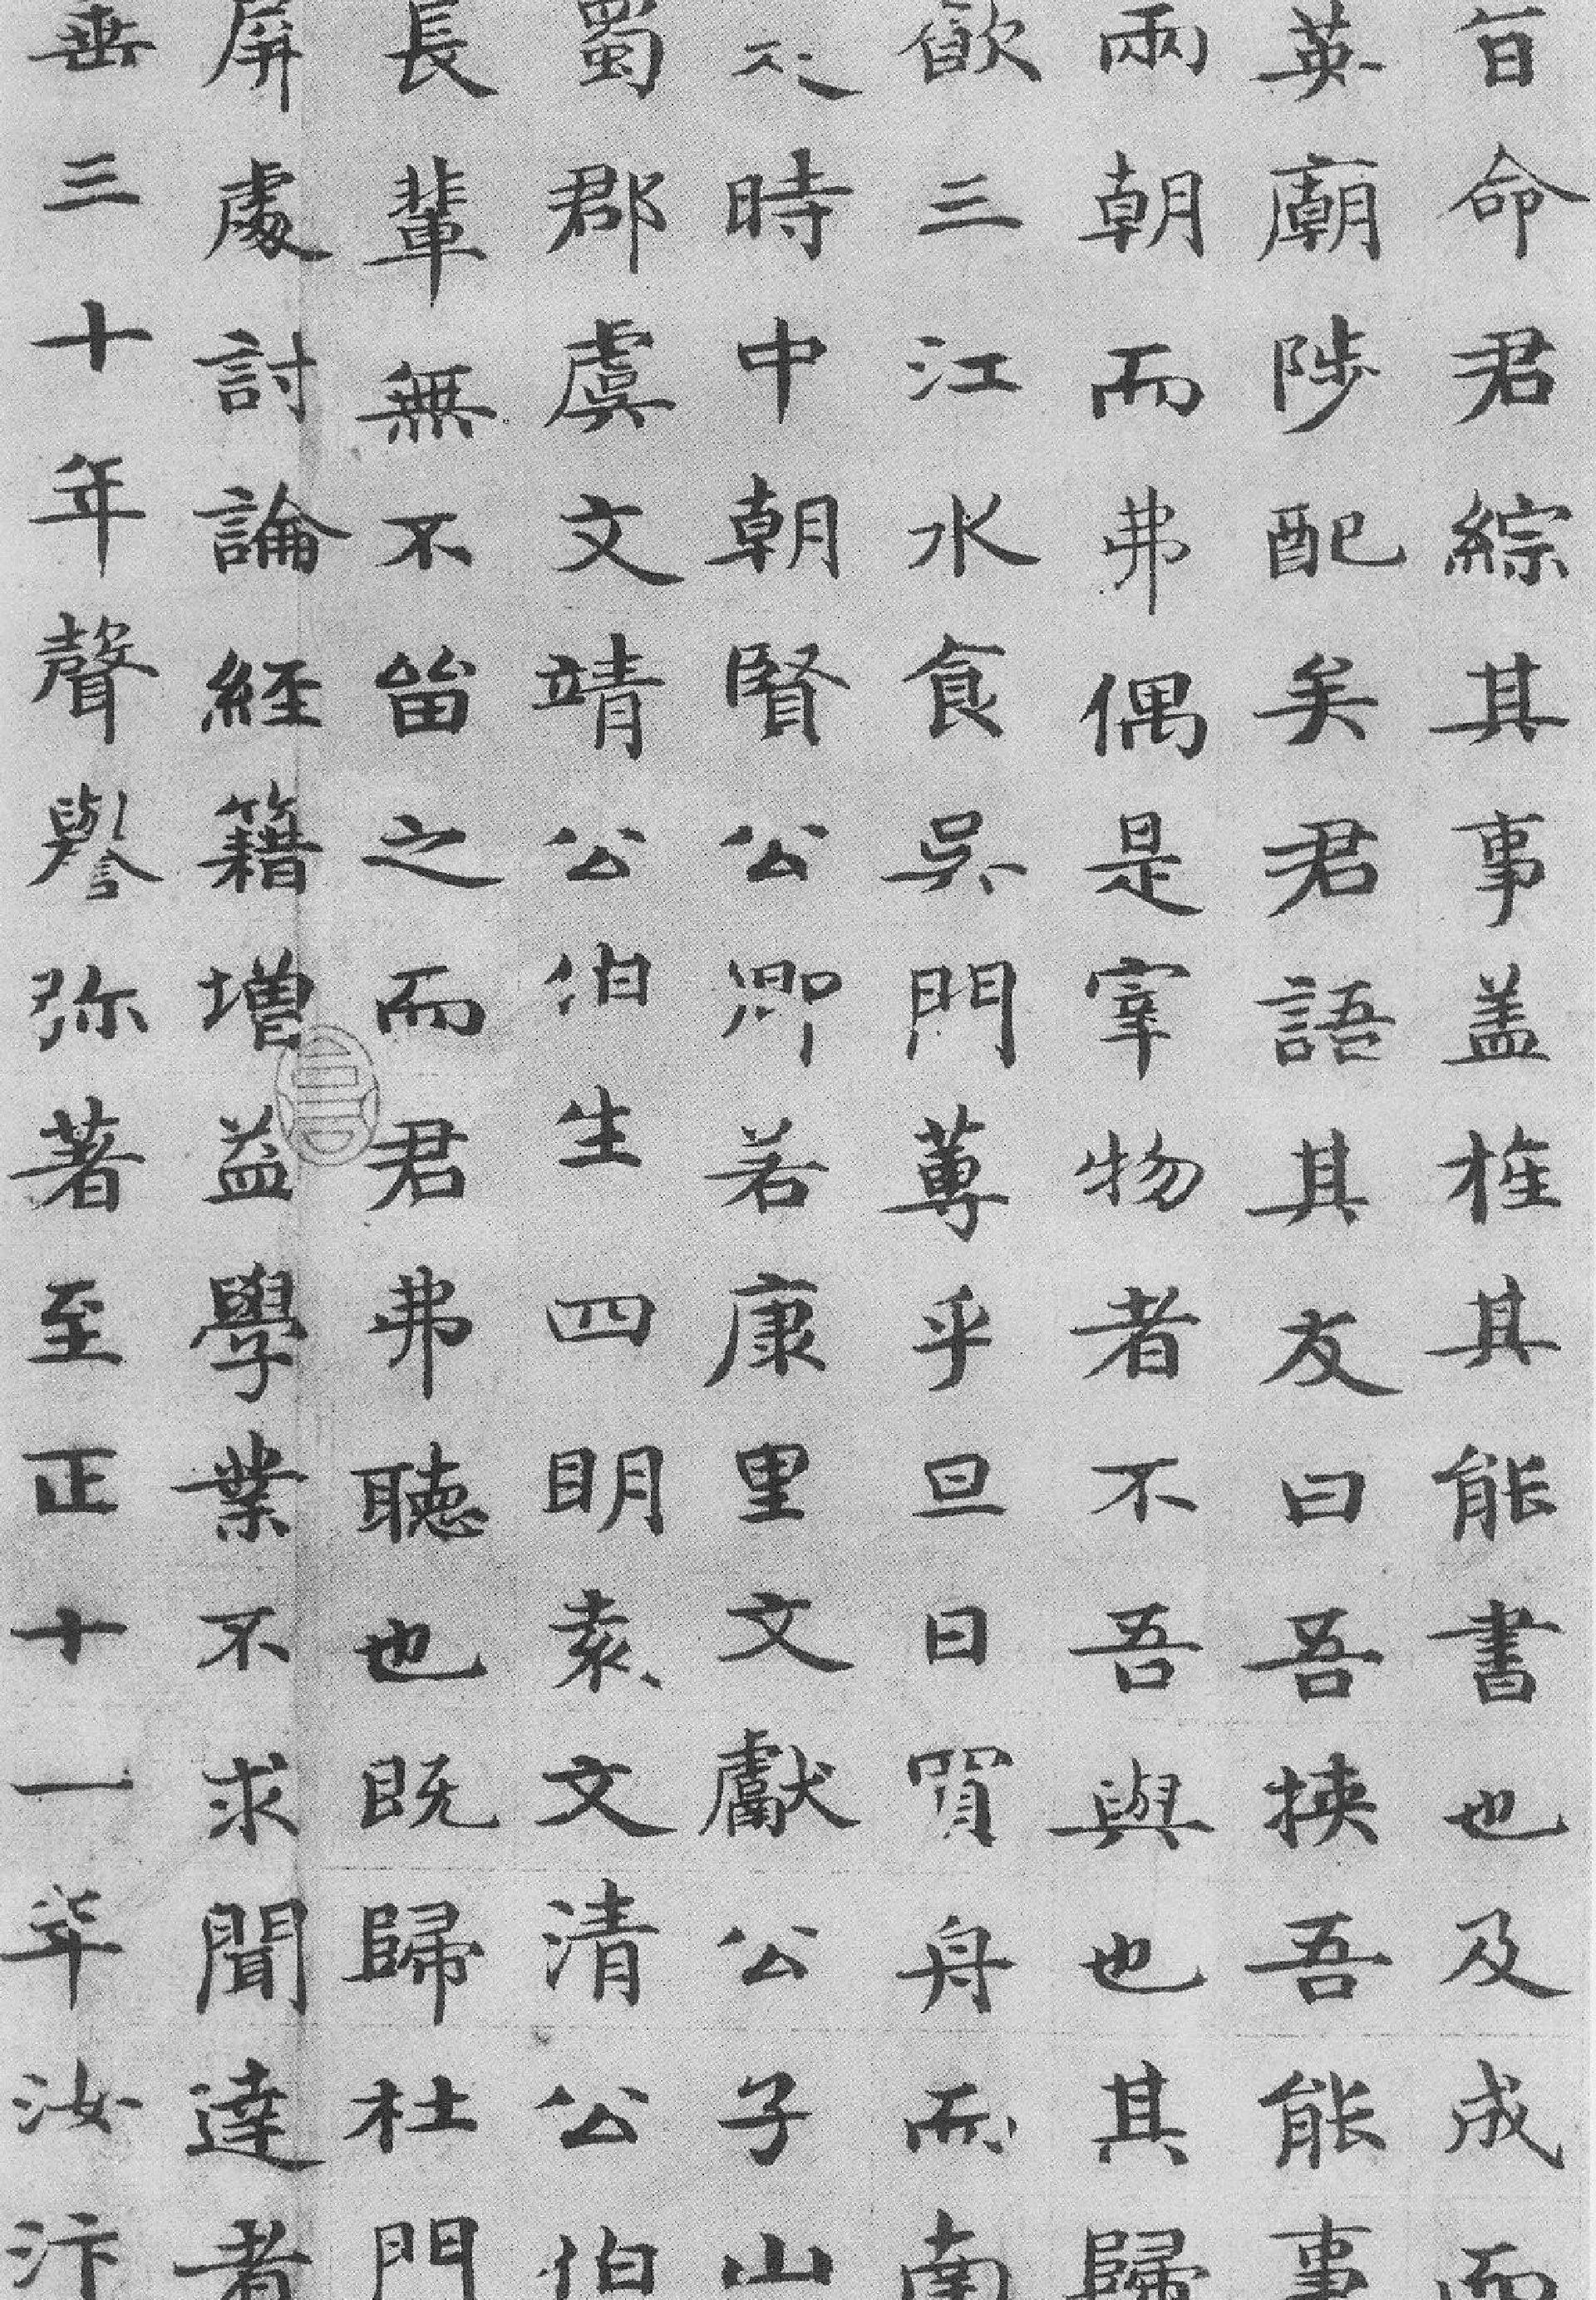 旨命君綜其事盖榷其能書也及成而
英廟陟配矣君語其友曰吾挾吾能事
兩朝而弗偶是宰物者不吾與也其歸
飲三江水食吳門蓴乎旦日買舟而南
時中朝賢公卿若康里文獻公子山
蜀郡虞文靖公伯生四明袁文清公伯
長輩無不留之而君弗聽也既歸杜門
屏處討論經籍增益學業不求聞達者
垂三十年聲譽弥著至正十一年汝汴